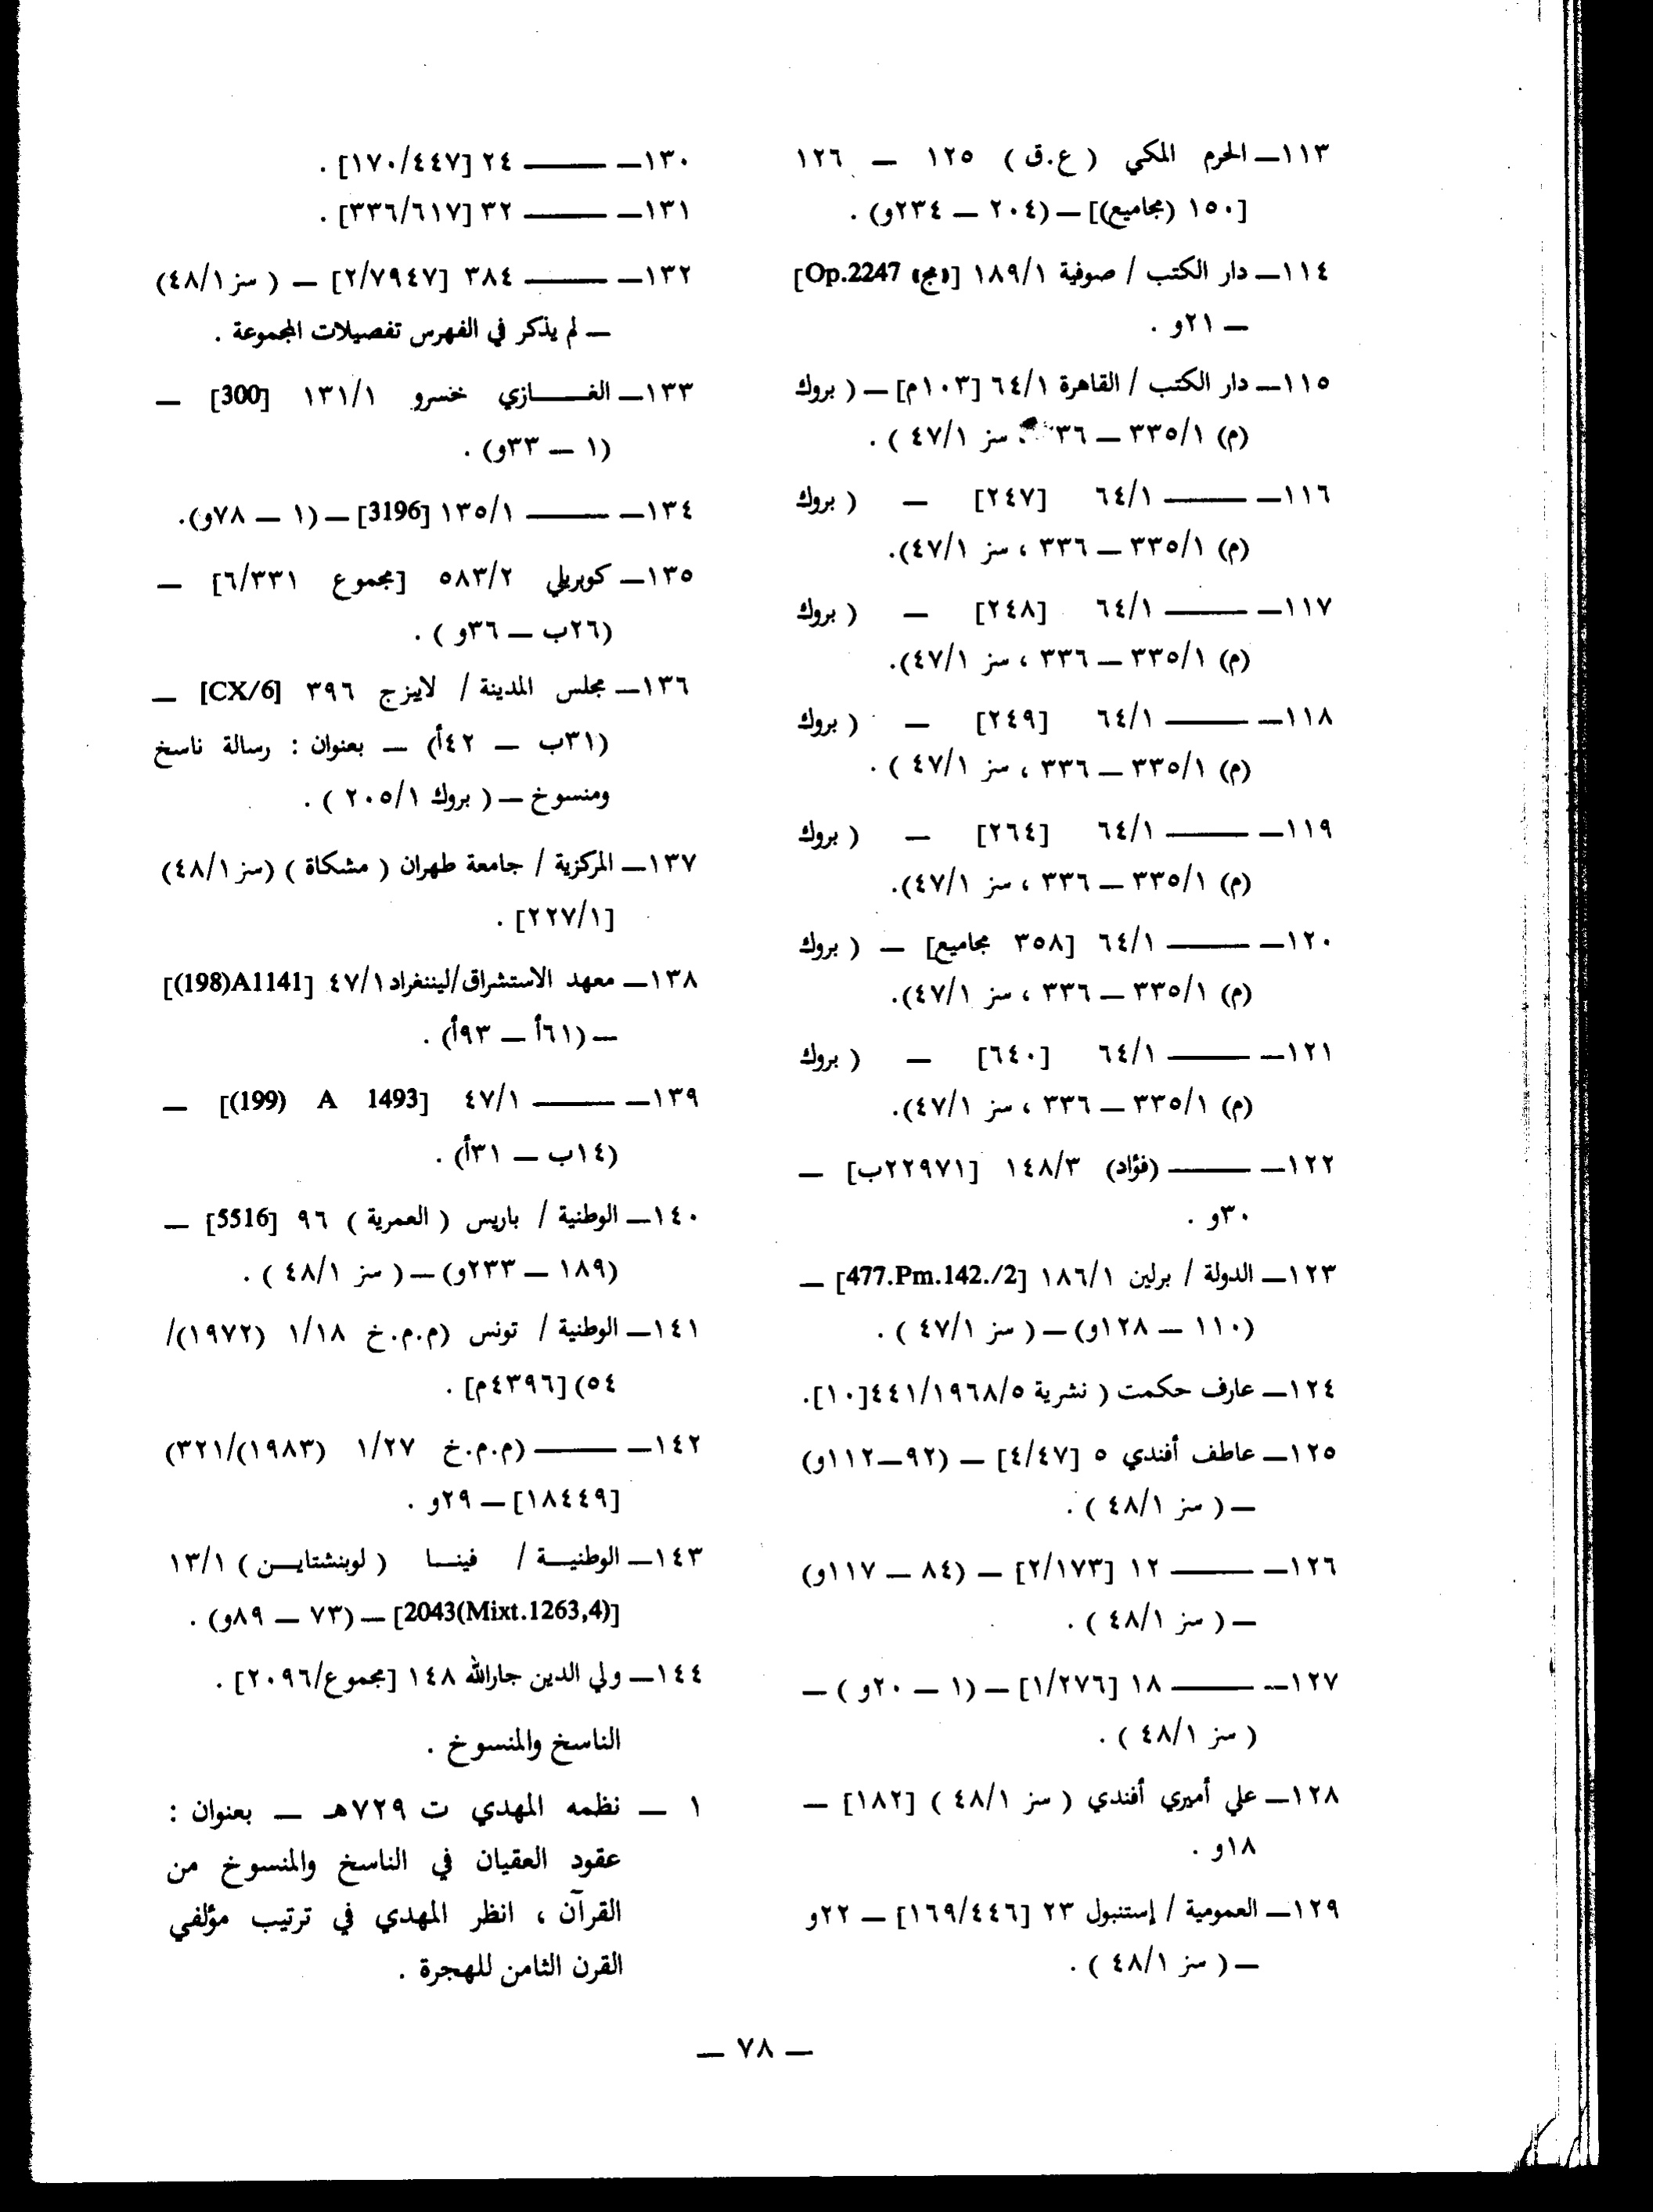 ١١٣ــ الحرم المكي ( ع.ق ) ١٢٥ ــ ١٢٦
[١٥٠ (مجاميع)] ــ (٢٠٤ ــ ٢٣٤و) .
١١٤ــ دار الكتب / صوفية ١/١٨٩ [«مج» Op.2247]
ــ ٢١و .
١١٥ــ دار الكتب / القاهرة ١/٦٤ [١٠٣م] ــ ( بروك
(م) ١/٣٣٥ ــ ٣٣٦، سز ١/٤٧ ) .
١١٦ــ ــــــــ ١/٦٤ [٢٤٧] ــ ( بروك
(م) ١/٣٣٥ ــ ٣٣٦ ، سز ١/٤٧).
١١٧ــ ــــــــ ١/٦٤ [٢٤٨] ــ ( بروك
(م) ١/٣٣٥ ــ ٣٣٦ ، سز ١/٤٧).
١١٨ــ ــــــــ ١/٦٤ [٢٤٩] ــ ( بروك
(م) ١/٣٣٥ ــ ٣٣٦ ، سز ١/٤٧ ) .
١١٩ــ ــــــــ ١/٦٤ [٢٦٤] ــ ( بروك
(م) ١/٣٣٥ ــ ٣٣٦ ، سز ١/٤٧).
١٢٠ــ ــــــــ ١/٦٤ [٣٥٨ مجاميع] ــ ( بروك
(م) ١/٣٣٥ ــ ٣٣٦ ، سز ١/٤٧).
١٢١ــ ــــــــ ١/٦٤ [٦٤٠] ــ ( بروك
(م) ١/٣٣٥ ــ ٣٣٦ ، سز ١/٤٧).
١٢٢ــ ــــــــ (فؤاد) ٣/١٤٨ [٢٢٩٧١ب] ــ
٣٠و .
١٢٣ــ الدولة / برلين ١/١٨٦ [477.Pm.142./2] ــ
(١١٠ ــ ١٢٨و) ــ ( سز ١/٤٧ ) .
١٢٤ــ عارف حكمت ( نشرية ٥/١٩٦٨/٤٤١[١٠].
١٢٥ــ عاطف أفندي ٥ [٤/٤٧] ــ (٩٢ــ١١٢و)
ــ ( سز ١/٤٨ ) .
١٢٦ــ ــــــــ ١٢ [٢/١٧٣] ــ (٨٤ ــ ١١٧و)
ــ ( سز ١/٤٨ ) .
١٢٧ــ ــــــــ ١٨ [١/٢٧٦] ــ (١ ــ ٢٠و ) ــ
( سز ١/٤٨ ) .
١٢٨ــ علي أميري أفندي ( سز ١/٤٨ ) [١٨٢] ــ
١٨و .
١٢٩ــ العمومية / إستنبول ٢٣ [١٦٩/٤٤٦] ــ ٢٢و
ــ ( سز ١/٤٨ ) .
١٣٠ــ ــــــــ ٢٤ [١٧٠/٤٤٧] .
١٣١ــ ــــــــ ٣٢ [٣٣٦/٦١٧] .
١٣٢ــ ــــــــ ٣٨٤ [٢/٧٩٤٧] ــ ( سز ١/٤٨)
ــ لم يذكر في الفهرس تفصيلات المجموعة .
١٣٣ــ الغـــازي خسرو ١/١٣١ [300] ــ
(١ ــ ٣٣و) .
١٣٤ــ ــــــــ ١/١٣٥ [3196] ــ (١ ــ ٧٨و).
١٣٥ــ كوبريلي ٢/٥٨٣ [مجموع ٦/٣٣١] ــ
(٢٦ب ــ ٣٦و ) .
١٣٦ــ مجلس المدينة / لايبزج ٣٩٦ [CX/6] ــ
(٣١ب ــ ٤٢أ) ــ بعنوان : رسالة ناسخ
ومنسوخ ــ ( بروك ١/٢٠٥ ) .
١٣٧ــ المركزية / جامعة طهران ( مشكاة ) (سز ١/٤٨)
[١/٢٢٧] .
١٣٨ــ معهد الاستشراق/ليننغراد ١/٤٧ [A1141(198)]
ــ (٦١أ ــ ٩٣أ) .
١٣٩ــ ــــــــ ١/٤٧ [A 1493 (199)] ــ
(١٤ب ــ ٣١أ) .
١٤٠ــ الوطنية / باريس ( العمرية ) ٩٦ [5516] ــ
(١٨٩ ــ ٢٣٣و) ــ ( سز ١/٤٨ ) .
١٤١ــ الوطنية / تونس (م.م.خ ١/١٨ (١٩٧٢)/
٥٤) [٤٣٩٦م] .
١٤٢ــ ــــــــ (م.م.خ ١/٢٧ (١٩٨٣)/٣٢١)
[١٨٤٤٩] ــ ٢٩و .
١٤٣ــ الوطنيـــة / فينـــا ( لوبنشتايـــن ) ١/١٣
[2043(Mixt.1263,4)] ــ (٧٣ ــ ٨٩و) .
١٤٤ــ ولي الدين جارالله ١٤٨ [مجموع/٢٠٩٦] .
الناسخ والمنسوخ .
١ ــ نظمه المهدي ت ٧٢٩هـ ــ بعنوان :
عقود العقيان في الناسخ والمنسوخ من
القرآن ، انظر المهدي في ترتيب مؤلفي
القرن الثامن للهجرة .
ــ ٧٨ ــ